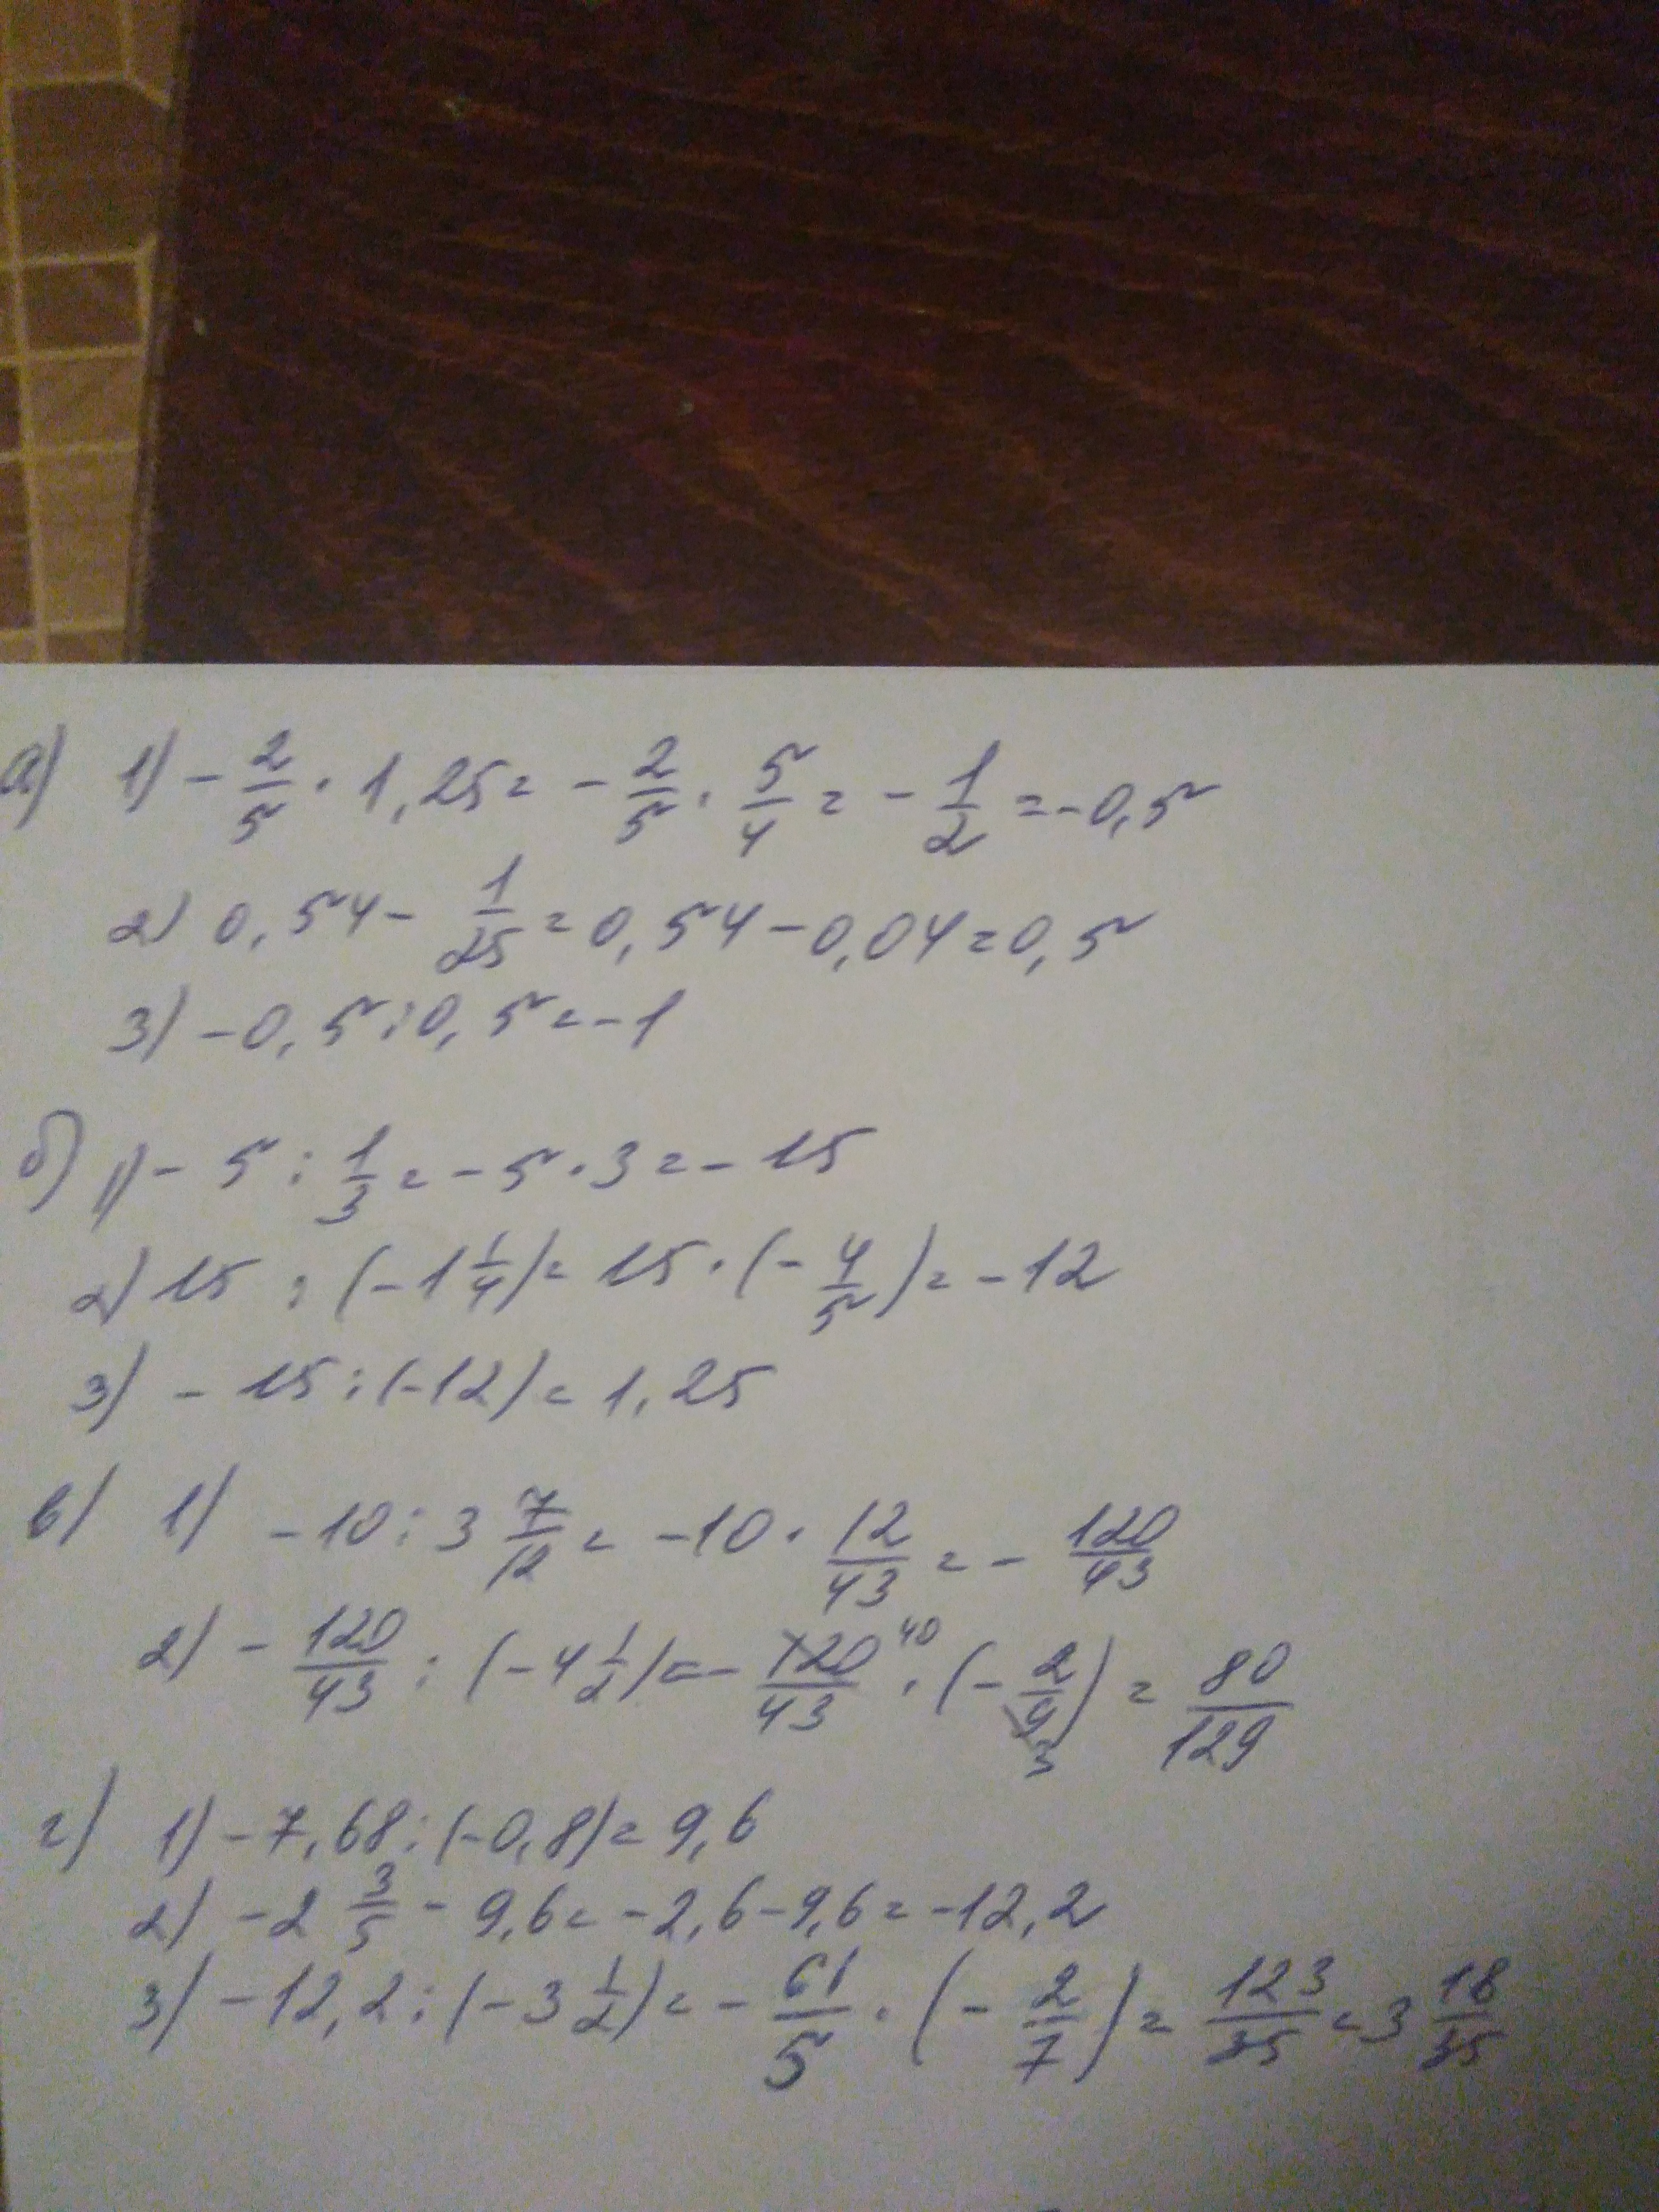 а) 1) - 2/5 · 1,25 = - 2/5 · 5/4 = - 1/2 = -0,5
2) 0,54 - 1/25 = 0,54 - 0,04 = 0,5
3) -0,5 : 0,5 = -1
б) 1) - 5 : 1/3 = - 5 · 3 = - 15
2) 15 : (-1 1/4) = 15 · (- 4/5) = - 12
3) - 15 : (-12) = 1,25
в) 1) - 10 : 3 7/12 = -10 · 12/43 = - 120/43
2) - 120/43 : (-4 1/2) = - 120/43 40 · (- 2/9 3) = 80/129
г) 1) - 7,68 : (-0,8) = 9,6
2) -2 3/5 - 9,6 = -2,6 - 9,6 = -12,2
3) -12,2 : (-3 1/2) = - 61/5 · (- 2/7) = 123/35 = 3 18/35